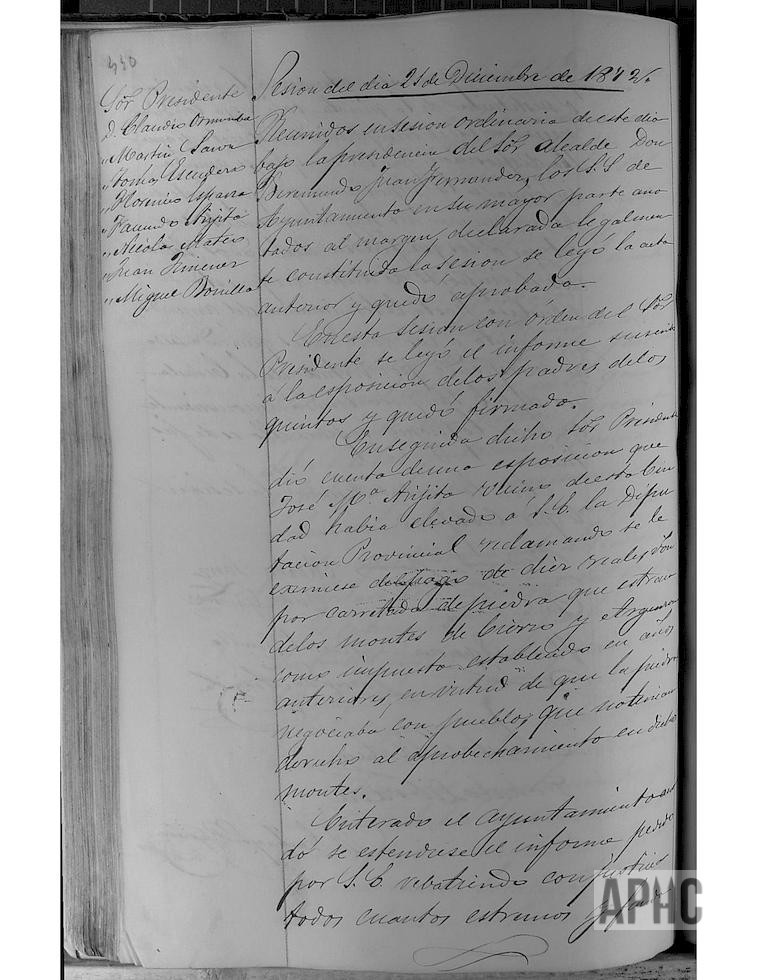 330
Sesion del dia 21 de Diciembre de 1872.
Sor Presidente
D. Claudio
" Martin
" Tomas Escudero
" Florencio Esparza
" Facundo Arijita
" Nicolas Mateo
" Juan Jimenez
" Miguel Bonilla
Reunidos en sesion ordinaria de este dia
bajo la presidencia del Sor Alcalde Don
Veremundo Juan Fernandez, los S.S. de
Ayuntamiento en su mayor parte ano
tados al margen, declarada legalmen
te constituida la sesion se leyó la acta
anterior y quedó aprobada.
En esta sesion con órden del Sor
Presidente se leyó el informe
á la esposicion de los padres de los
quintos y quedó firmado.
Enseguida dicho Sor Presidente
dió cuenta de una esposicion que
José Ma Arijita vecino de esta Ciu
dad habia elevado á S.E. la Dipu
tacion Provincial reclamando se le
eximiese del pago de diez reales von
por carretada de piedra que estrae
de los montes de Cierzo y Argenzon
como impuesto establecido en años
anteriores, en virtud de que la piedra
negociaba con pueblos que no tenian
derecho al aprobechamiento en dichos
montes.
Enterado el Ayuntamiento acor
dó se estendiese el informe pedido
por S.E. rebatiendo con justicia
todos cuantos estremos
APHC